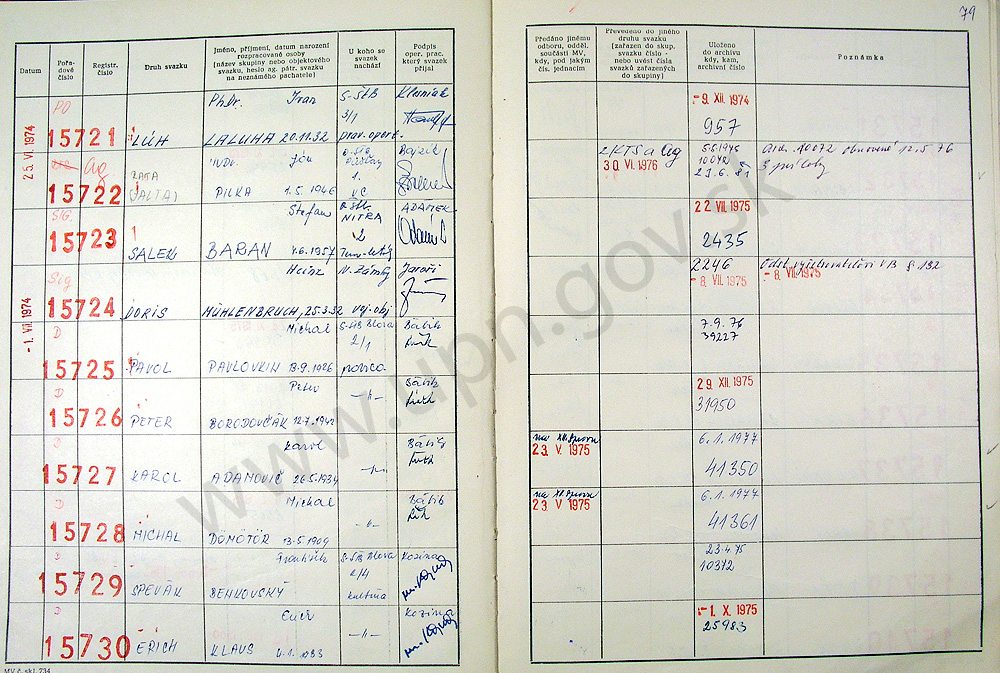 79
Datum
Pořa-
dové
číslo
Registr.
číslo
Druh svazku
Jméno, příjmení, datum narození
rozpracované osoby
(název skupiny nebo objektového
svazku, heslo ag. pátr. svazku
na neznámého pachatele)
U koho se
svazek
nachází
Podpis
oper. prac.
který svazek
přijal
Předáno jinému
odboru, odděl.
součásti MV,
kdy, pod jakým
čís. jednacím
Převedeno do jiného
druhu svazku
(zařazen do skup.
svazku číslo -
nebo uvést čísla
svazků zařazených
do skupiny)
Uloženo
do archivu
kdy, kam,
archivní číslo
Poznámka
25. VI. 1974
PO
15721
LÚH
PhDr. Ivan
LALUHA 20.11.32
S-ŠtB
3/1
prav. oport.
- 9. XII. 1974
957
Ag
15722
ZATA
(JALTA)
JUDr. Ján
PILKA 1.5.1946
1.
VC
Bajzík
2/KTS a Ag
30. VI. 1976
5.5.1975
10072
23.6.81
10072 obnovené 12.5.76
3 prílohy
SIG.
15723
SALEN
Štefan
BARAN 4.6.1957
NITRA
2
ADAMEK
22. VII. 1975
2435
- 1. VII. 1974
Sig
15724
DORIS
Heinz
MÜHLENBRUCH, 25.3.32
N. Zámky
voj. obj
2246
- 8. VII. 1975
- 8. VII. 1975
D
15725
PAVOL
Michal
PAVLOVKIN 13.9.1926
S-ŠtB Blava
2/1
Bábik
7.9.76
39227
D
15726
PETER
Peter
BORODOVČÁK 12.7.1942
-"-
Bábik
29. XII. 1975
31950
D
15727
KAROL
Karol
ADAMOVIČ 26.5.1934
-"-
Bábik
23. V. 1975
6.1.1977
41350
D
15728
MICHAL
Michal
DÖMÖTÖR 13.5.1909
-"-
Bábik
23. V. 1975
6.1.1977
41361
D
15729
SPEVÁK
František
BENKOVSKÝ
S-ŠtB Blava
2/4
kultúra
Kozina
23.4.75
10372
D
15730
ERICH
Emir
KLAUS 4.1.1933
-"-
Kozina
- 1. X. 1975
25983
MV č. skl. 734
www.upn.gov.sk